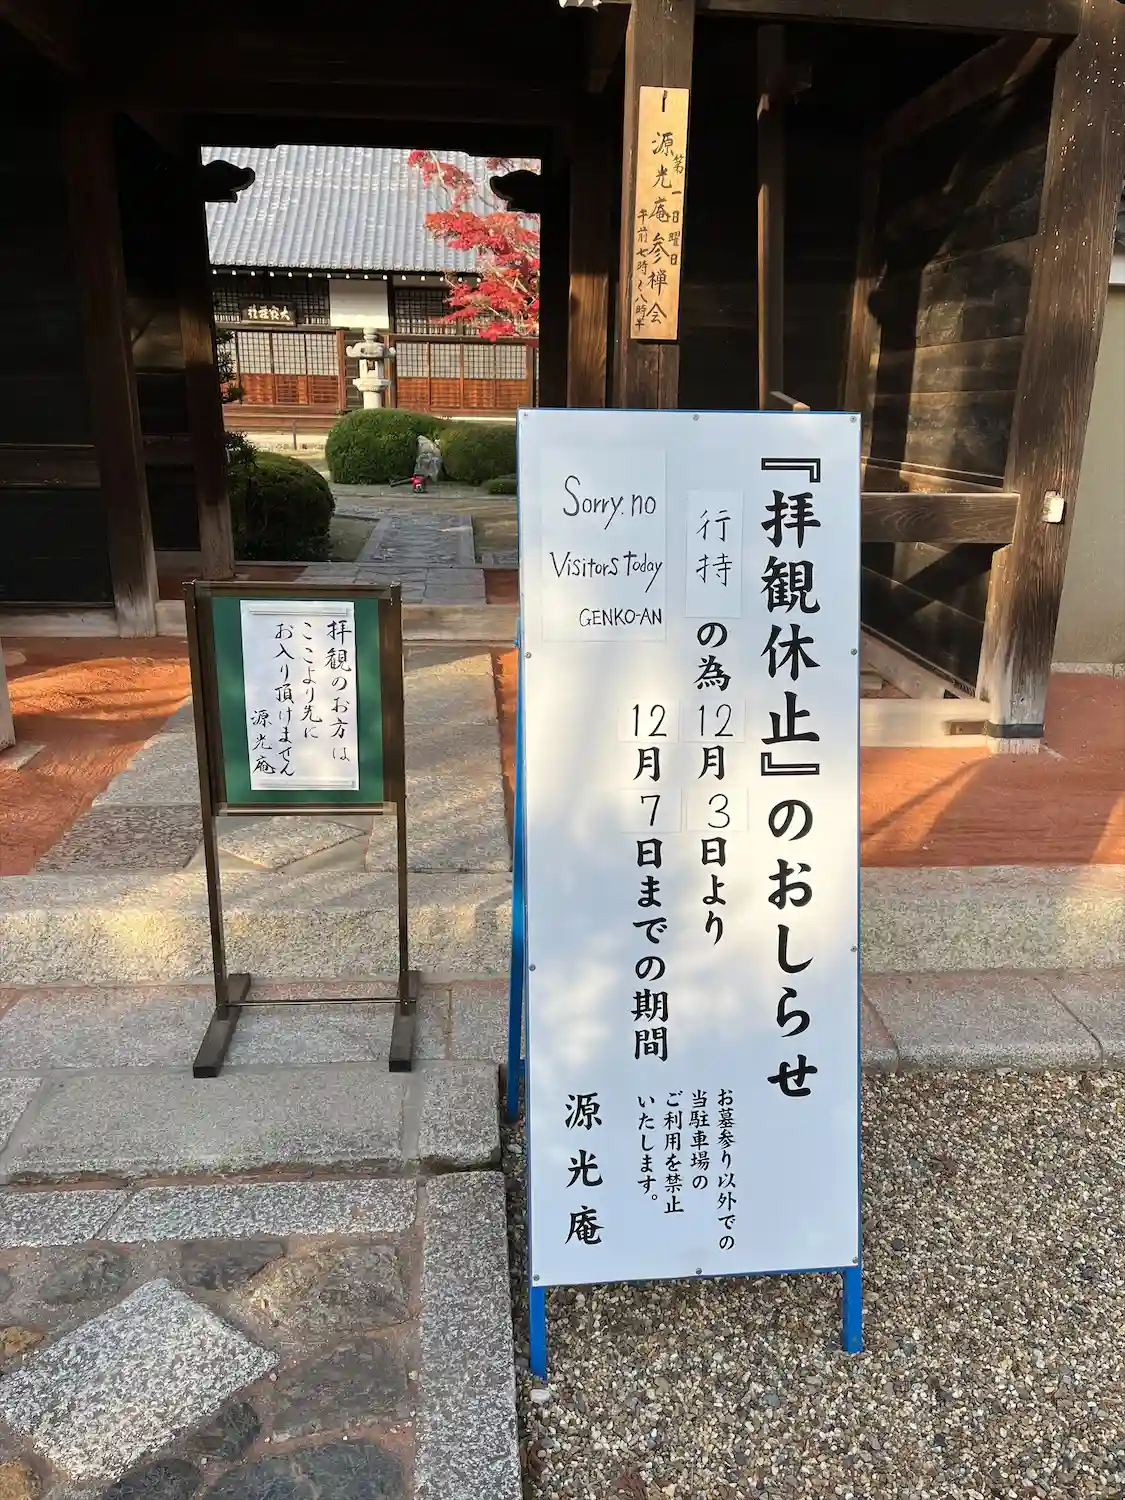 源光庵参禅会
第一日曜日
午前七時〜八時半
『拝観休止』のおしらせ
行持の為12月3日より
12月7日までの期間
お墓参り以外での
当駐車場の
ご利用を禁止
いたします。
源光庵
Sorry. no
Visitors Today
GENKO-AN
拝観のお方は
ここより先に
お入り頂けません
源光庵